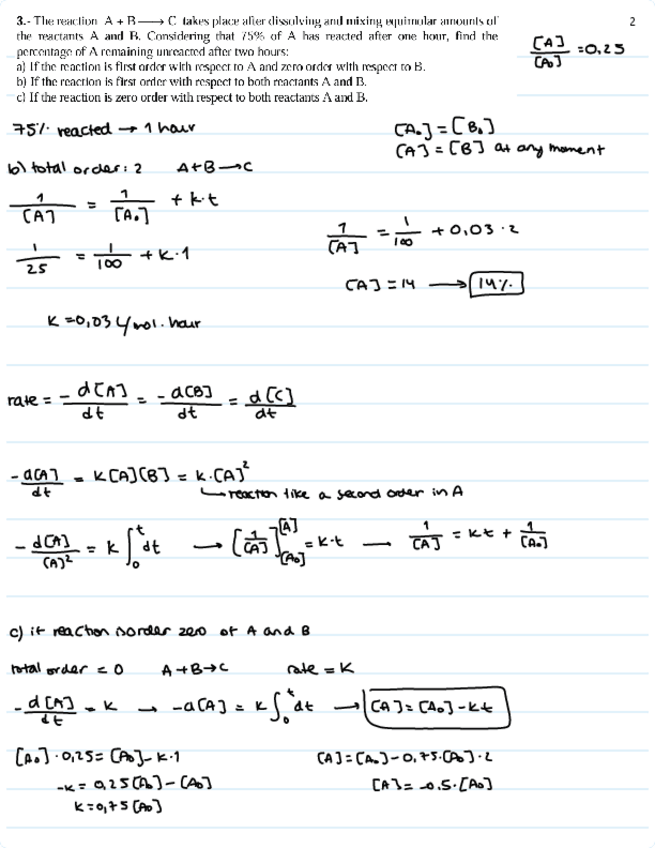 3.- The reaction A + B ⟶ C takes place after dissolving and mixing equimolar amounts of
the reactants A and B. Considering that 75% of A has reacted after one hour, find the
percentage of A remaining unreacted after two hours:
a) If the reaction is first order with respect to A and zero order with respect to B.
b) If the reaction is first order with respect to both reactants A and B.
c) If the reaction is zero order with respect to both reactants A and B.
2
[A]/[A₀] = 0,25
75% reacted → 1 hour
[A₀] = [B₀]
[A] = [B] at any moment
b) total order: 2 A + B → C
1/[A] = 1/[A₀] + k·t
1/25 = 1/100 + k·1
k = 0,03 L/mol·hour
1/[A] = 1/100 + 0,03·2
[A] = 14 → 14%
rate = -d[A]/dt = -d[B]/dt = d[C]/dt
-d[A]/dt = k[A][B] = k·[A]²
↳ reaction like a second order in A
-d[A]/[A]² = k ∫₀ᵗ dt → [1/[A]] [A] [A₀] = k·t — 1/[A] = kt + 1/[A₀]
c) if reaction is order zero of A and B
total order = 0 A + B → C rate = k
-d[A]/dt = k → -d[A] = k ∫₀ᵗ dt → [A] = [A₀] - kt
[A₀]·0,25 = [A₀] - k·1
-k = 0,25[A₀] - [A₀]
k = 0,75[A₀]
[A] = [A₀] - 0,75·[A₀]·2
[A] = -0,5·[A₀]